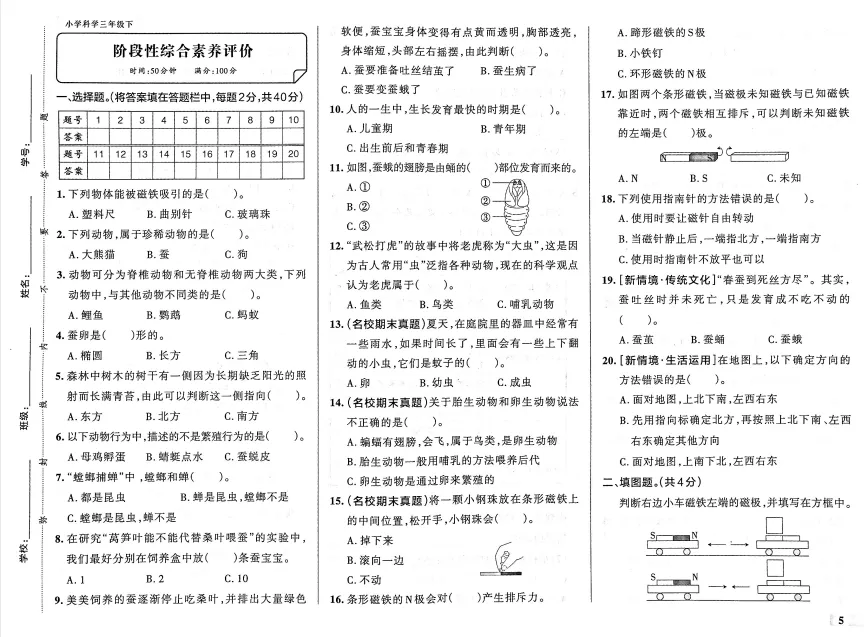 小学科学三年级下
阶段性综合素养评价
时间:50分钟 满分:100分
一、选择题。(将答案填在答题栏中,每题2分,共40分)
题号 1 2 3 4 5 6 7 8 9 10
答案
题号 11 12 13 14 15 16 17 18 19 20
答案
1. 下列物体能被磁铁吸引的是( )。
A. 塑料尺 B. 曲别针 C. 玻璃珠
2. 下列动物,属于珍稀动物的是( )。
A. 大熊猫 B. 蚕 C. 狗
3. 动物可分为脊椎动物和无脊椎动物两大类,下列
动物中,与其他动物不同类的是( )。
A. 鲤鱼 B. 鹦鹉 C. 蚂蚁
4. 蚕卵是( )形的。
A. 椭圆 B. 长方 C. 三角
5. 森林中树木的树干有一侧因为长期缺乏阳光的照
射而长满青苔,由此可以判断这一侧指向( )。
A. 东方 B. 北方 C. 南方
6. 以下动物行为中,描述的不是繁殖行为的是( )。
A. 母鸡孵蛋 B. 蜻蜓点水 C. 蚕蜕皮
7. “螳螂捕蝉”中,螳螂和蝉( )。
A. 都是昆虫 B. 蝉是昆虫,螳螂不是
C. 螳螂是昆虫,蝉不是
8. 在研究“莴笋叶能不能代替桑叶喂蚕”的实验中,
我们最好分别在饲养盒中放( )条蚕宝宝。
A. 1 B. 2 C. 10
9. 美美饲养的蚕逐渐停止吃桑叶,并排出大量绿色
软便,蚕宝宝身体变得有点黄而透明,胸部透亮,
身体缩短,头部左右摇摆,由此判断( )。
A. 蚕要准备吐丝结茧了 B. 蚕生病了
C. 蚕要变蚕蛾了
10. 人的一生中,生长发育最快的时期是( )。
A. 儿童期 B. 青年期
C. 出生前后和青春期
11. 如图,蚕蛾的翅膀是由蛹的( )部位发育而来的。
A. ①
B. ②
C. ③
①
②
③
12. “武松打虎”的故事中将老虎称为“大虫”,这是因
为古人常用“虫”泛指各种动物,现在的科学观点
认为老虎属于( )。
A. 鱼类 B. 鸟类 C. 哺乳动物
13. (名校期末真题)夏天,在庭院里的器皿中经常有
一些雨水,如果时间长了,里面会有一些上下翻
动的小虫,它们是蚊子的( )。
A. 卵 B. 幼虫 C. 成虫
14. (名校期末真题)关于胎生动物和卵生动物说法
不正确的是( )。
A. 蝙蝠有翅膀,会飞,属于鸟类,是卵生动物
B. 胎生动物一般用哺乳的方法喂养后代
C. 卵生动物是通过卵来繁殖的
15. (名校期末真题)将一颗小钢珠放在条形磁铁上
的中间位置,松开手,小钢珠会( )。
A. 掉下来
B. 滚向一边
C. 不动
16. 条形磁铁的N极会对( )产生排斥力。
A. 蹄形磁铁的S极
B. 小铁钉
C. 环形磁铁的N极
17. 如图两个条形磁铁,当磁极未知磁铁与已知磁铁
靠近时,两个磁铁相互排斥,可以判断未知磁铁
的左端是( )极。
N S
A. N B. S C. 未知
18. 下列使用指南针的方法错误的是( )。
A. 使用时要让磁针自由转动
B. 当磁针静止后,一端指北方,一端指南方
C. 使用时指南针不放平也可以
19. [新情境·传统文化]“春蚕到死丝方尽”。其实,
蚕吐丝时并未死亡,只是发育成不吃不动的
( )。
A. 蚕茧 B. 蚕蛹 C. 蚕蛾
20. [新情境·生活运用]在地图上,以下确定方向的
方法错误的是( )。
A. 面对地图,上北下南,左西右东
B. 先用指向标确定北方,再按照上北下南、左西
右东确定其他方向
C. 面对地图,上南下北,左西右东
二、填图题。(共4分)
判断右边小车磁铁左端的磁极,并填写在方框中。
S N
S N
学校:
班级:
姓名:
学号:
弥 封 线 内 不 要 答 题
5